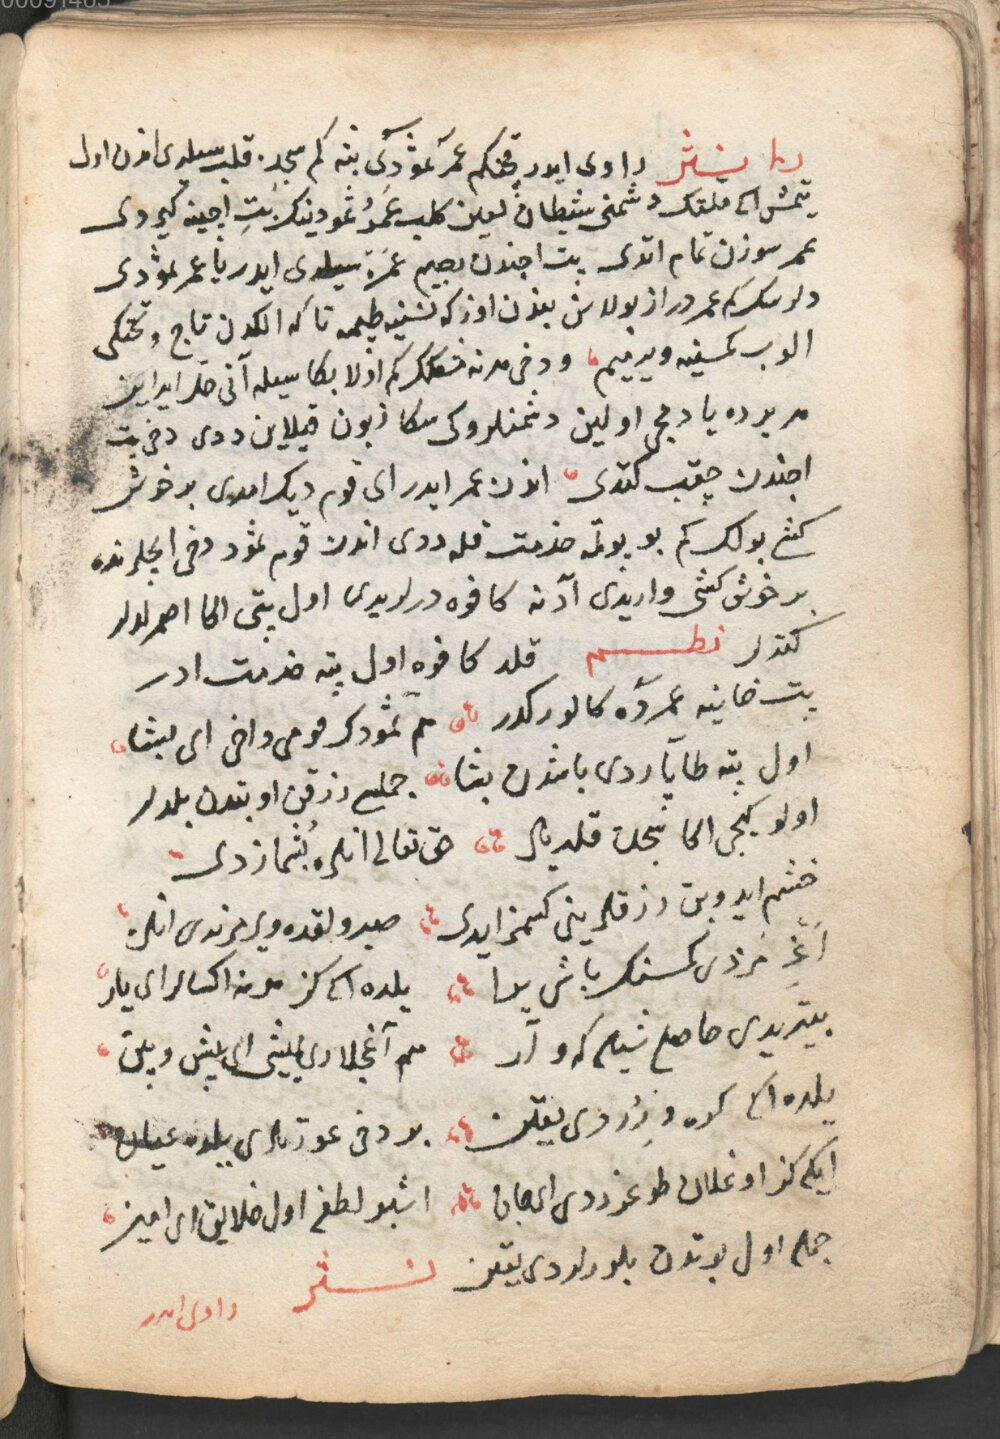 00091485
نثر راوی ایدر قچنکم عمر ثمودکی بته کم سجده قلب سیلدی اندن اول
یتمش ایکی ملتک دشمنی شیطان لعین کلب عمر ثمودینک بت اجینه کیردی
عمر سوزن تمام اتدی بت اجندن بجیم عمره سیلدی ایدر یا عمر ثمودی
دلرسک کم عمر دراز بولاسن بندن اوزکه نسنیه طپمه تا که الکدن تاج و تختکی
الوب کمسنیه ویرمیم و دخی هر نه مشکلک کم اولا بکا سیله آنی حل ایدرین
هر یرده یاردمجی اولین دشمنلروکی سکا زبون قیلاین ددی دخی بت
اجندن چقب کتدی اندن عمر ایدر ای قوم دیک امدی بر خوش
کشی بولک کم بو بوته خدمت قله ددی اندن قوم ثمود دخی ایچلرنده
بر خوش کشی واریدی آدنه کافوه درلریدی اول بتی اکا اصمرلدلر
کتدلر نظم قلد کافوه اول بته خدمت ادر
بت خانینه عمرده کالور کدر هم ثمودک قومی داخی ای بشا
اول بته طاپاردی بامثدن بشا جملسی رزقن او بتدن بلدلر
اولو کیجی اکا سجده قلدیلر حق تعالی انلره خشم ازدی
خشم ایدوبن رزقلرینی کسمز ایدی صیرولقده ویرمزدی انلره
آغرمزدی کمسنک باشی یوا یلده ایکی کز هر نه اکسالر ای یار
بیتریدی حاصلی شیلم که وار هم آغجلاری یمیشی ای پیش و بلق
یلده ایکی کره ویردی یقین بر دخی عورتلری یلده عیان
ایکی کز اوغلان طوغرردی ای جان اشبو لطفی اول خلایق ای امین
جمله اول بوتدن بلورلردی یقین نثر
راوی ایدر